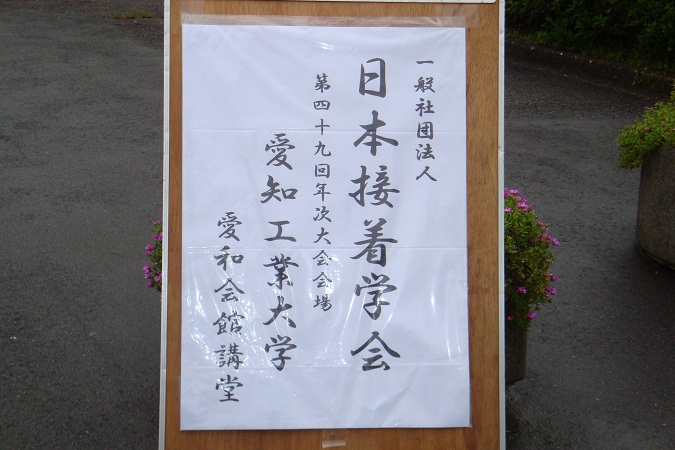 一般社団法人
日本接着学会
第四十九回年次大会会場
愛知工業大学
愛和会館講堂